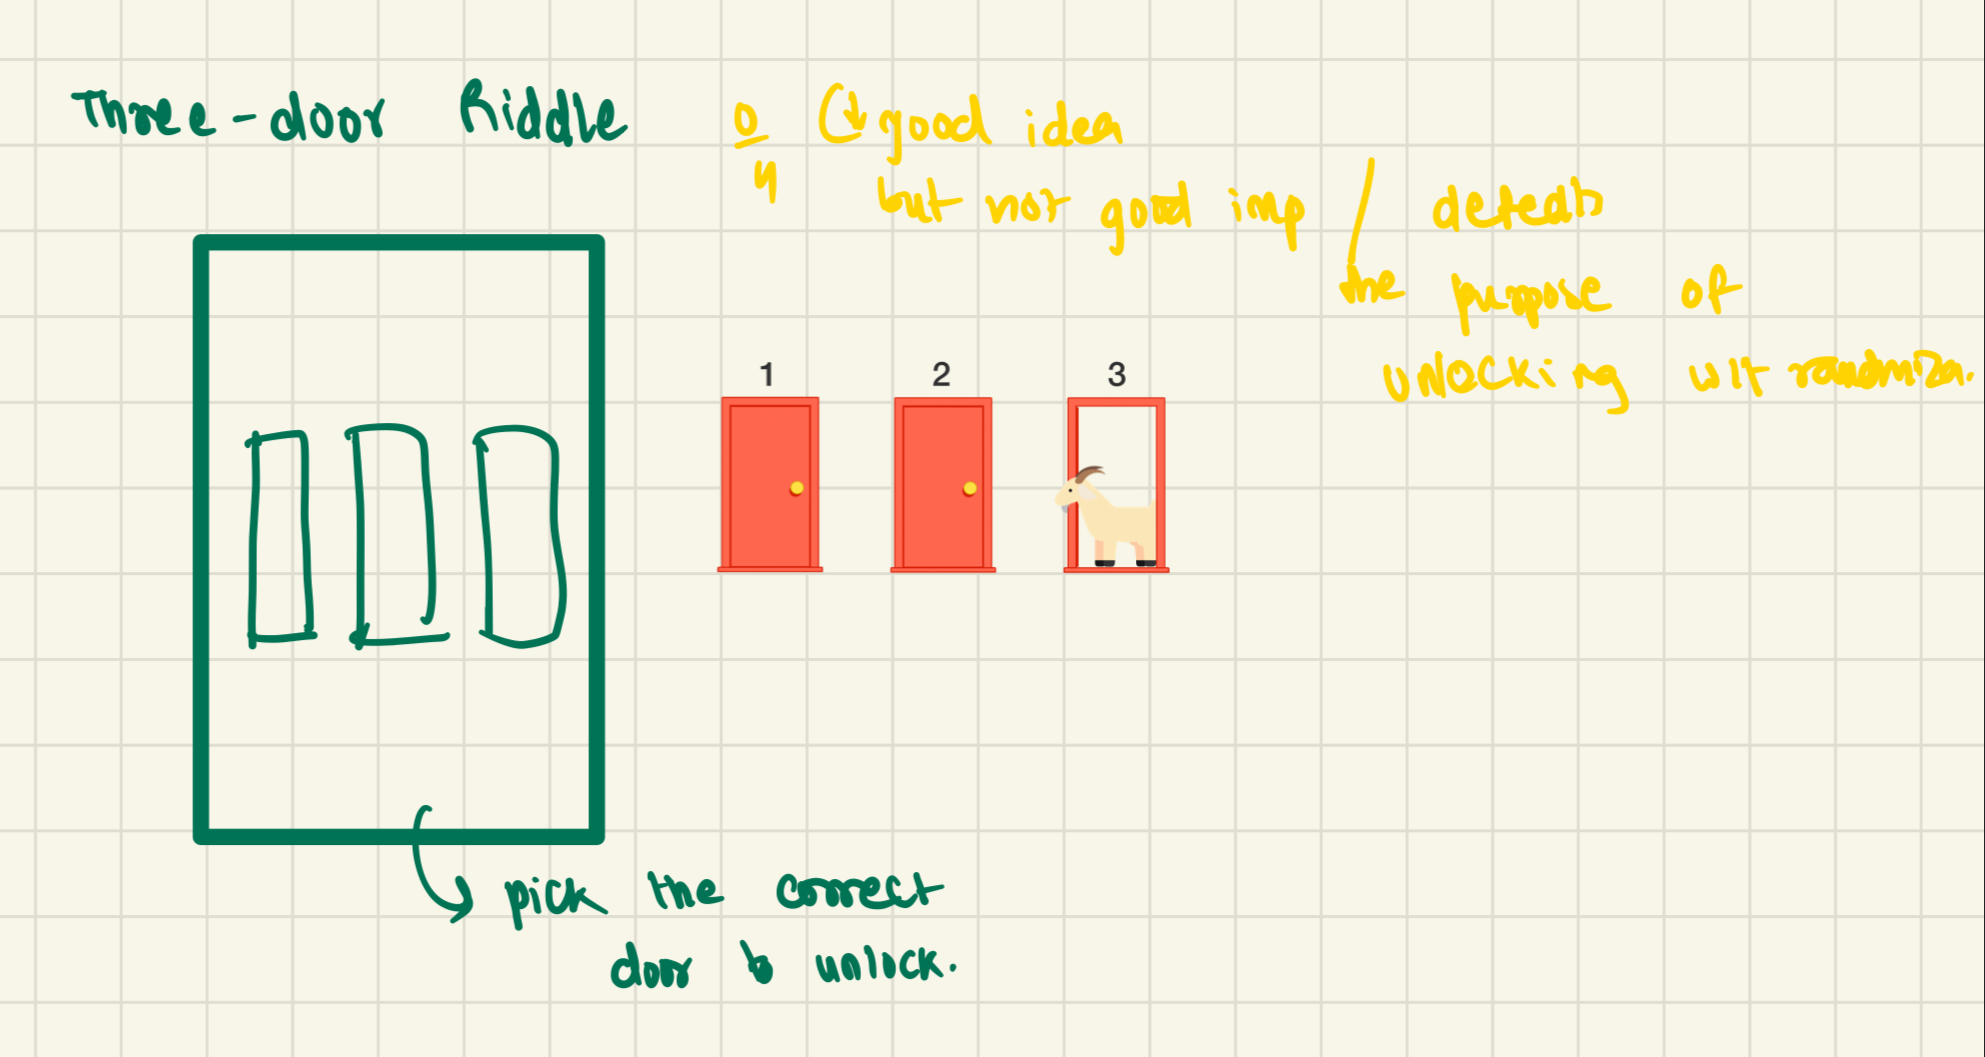 Three-door Riddle
0/4
good idea
but not good imp / defeats
the purpose of
unlocking wit randomiza.
1 2 3
pick the correct
door to unlock.